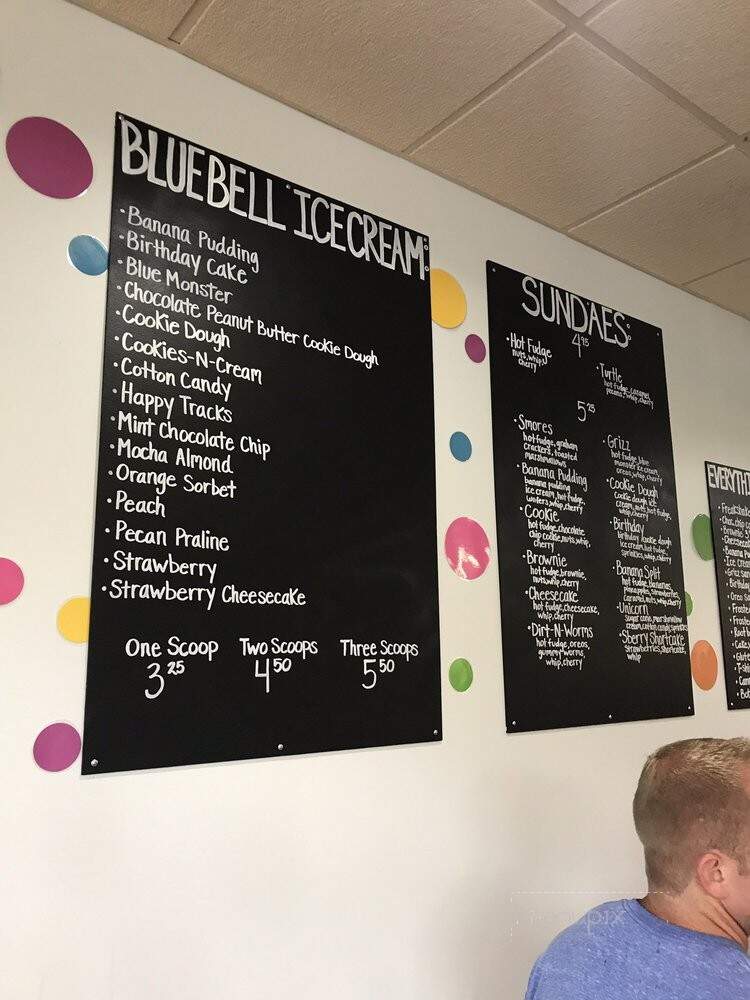 BLUEBELL ICECREAM:
·Banana Pudding
·Birthday Cake
·Blue Monster
·Chocolate Peanut Butter Cookie Dough
·Cookie Dough
·Cookies-N-Cream
·Cotton Candy
·Happy Tracks
·Mint Chocolate Chip
·Mocha Almond
·Orange Sorbet
·Peach
·Pecan Praline
·Strawberry
·Strawberry Cheesecake
One Scoop Two Scoops Three Scoops
3 25 4 50 5 50
SUNDAES:
4 95
·Hot Fudge
nuts, whip,
cherry
·Turtle
hot fudge, caramel,
pecans, whip, cherry
5 25
·Smores
hot fudge, graham
crackers, toasted
marshmallows
·Banana Pudding
banana pudding
ice cream, hot fudge,
wafers, whip, cherry
·Cookie
hot fudge, chocolate
chip cookie, nuts, whip,
cherry
·Brownie
hot fudge, brownie,
nuts, whip, cherry
·Cheesecake
hot fudge, cheesecake,
whip, cherry
·Dirt-N-Worms
hot fudge, oreos,
gummy worms,
whip, cherry
·Grizz
hot fudge, blue
monster ice cream,
oreos, whip, cherry
·Cookie Dough
Cookie dough ice
cream, nuts, hot fudge,
whip, cherry
·Birthday
birthday cookie dough
ice cream, hot fudge,
sprinkles, whip, cherry
·Banana Split
hot fudge, bananas,
pineapples, strawberries,
caramel, nuts, whip, cherry
·Unicorn
Sugar cone, marshmallow
cream, cotton candy, sprinkles
·Sberry Shortcake
strawberries, shortcake,
whip
EVERYTHI
·Freakshake
·Choc. chip
·Brownie
·Cheesecake
·Banana
·Ice Cream
·Birthday